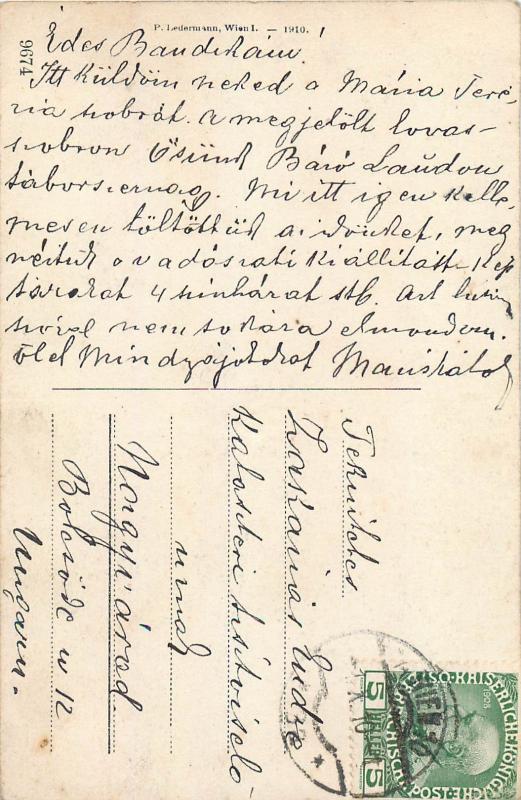 P. Ledermann, Wien I. — 1910.
9674
Édes Bandikám!
Itt küldöm neked a Mária Teré-
zia szobrát. A megjelölt lovas-
szobron Ősünk Báró Laudon
táborszernagy. Mi itt igen kelle-
mesen töltöttük a időnket, meg
néztük a vadászati kiállítást, kép
tárakat 4 szinházat stb. Azt
szóval nem sokára elmondom.
ölel Mindnyájatokat
Tekintetes
Endre
Kataszteri tisztviselő
urnak
Nagyvárad
u 12
Ungarn.
WIEN
X 10
KAISERLICHE KÖNIGLICHE
ÖSTERREICHISCHE POST
1908
5 HELLER 5